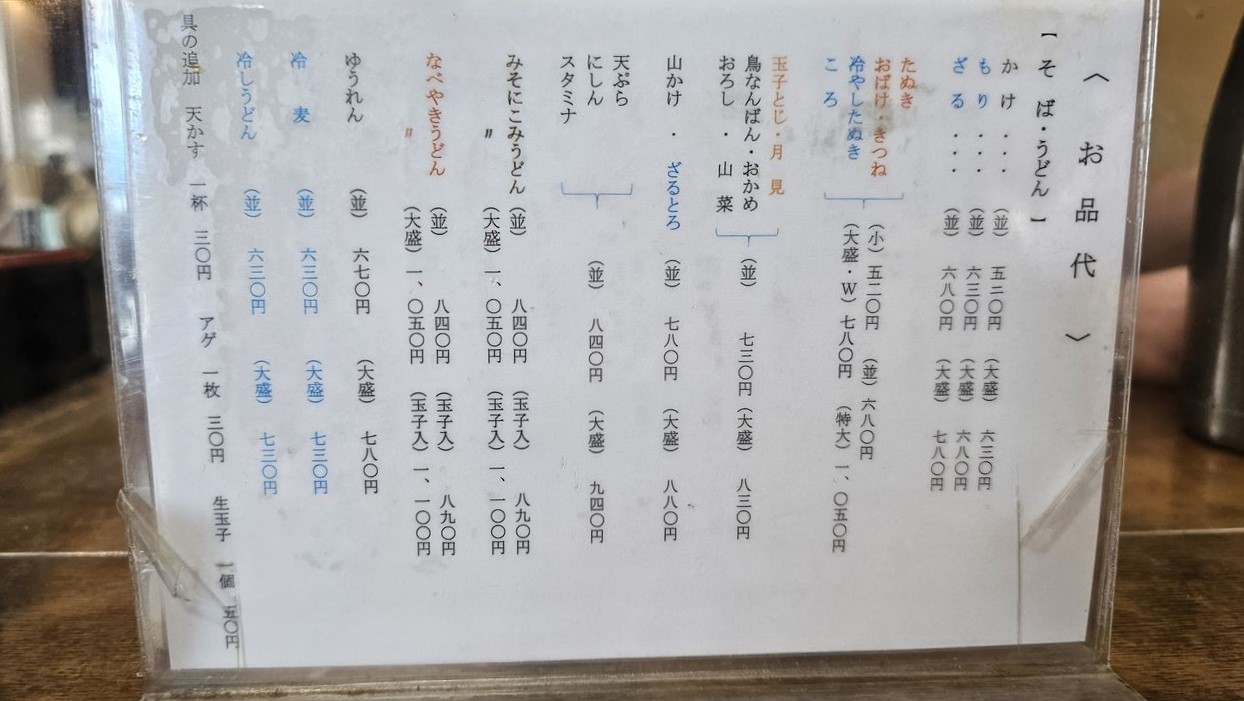 〈 お 品 代 〉
【 そ ば・うどん 】
か け ・・・ (並) 五二〇円 (大盛) 六三〇円
も り ・・・ (並) 六三〇円 (大盛) 六八〇円
ざ る ・・・ (並) 六八〇円 (大盛) 七八〇円
たぬき
おばけ・きつね (小) 五二〇円 (並) 六八〇円
冷やしたぬき (大盛・W) 七八〇円 (特大) 一、〇五〇円
こ ろ
玉子とじ・月 見
鳥なんばん・おかめ (並) 七三〇円 (大盛) 八三〇円
おろし ・ 山 菜
山かけ ・ ざるとろ (並) 七八〇円 (大盛) 八八〇円
天ぷら
にしん (並) 八四〇円 (大盛) 九四〇円
スタミナ
みそにこみうどん (並) 八四〇円 (玉子入) 八九〇円
〃 (大盛) 一、〇五〇円 (玉子入) 一、一〇〇円
なべやきうどん (並) 八四〇円 (玉子入) 八九〇円
〃 (大盛) 一、〇五〇円 (玉子入) 一、一〇〇円
ゆうれん (並) 六七〇円 (大盛) 七八〇円
冷 麦 (並) 六三〇円 (大盛) 七三〇円
冷しうどん (並) 六三〇円 (大盛) 七三〇円
具の追加 天かす 一杯 三〇円 アゲ 一枚 三〇円 生玉子 一個 五〇円